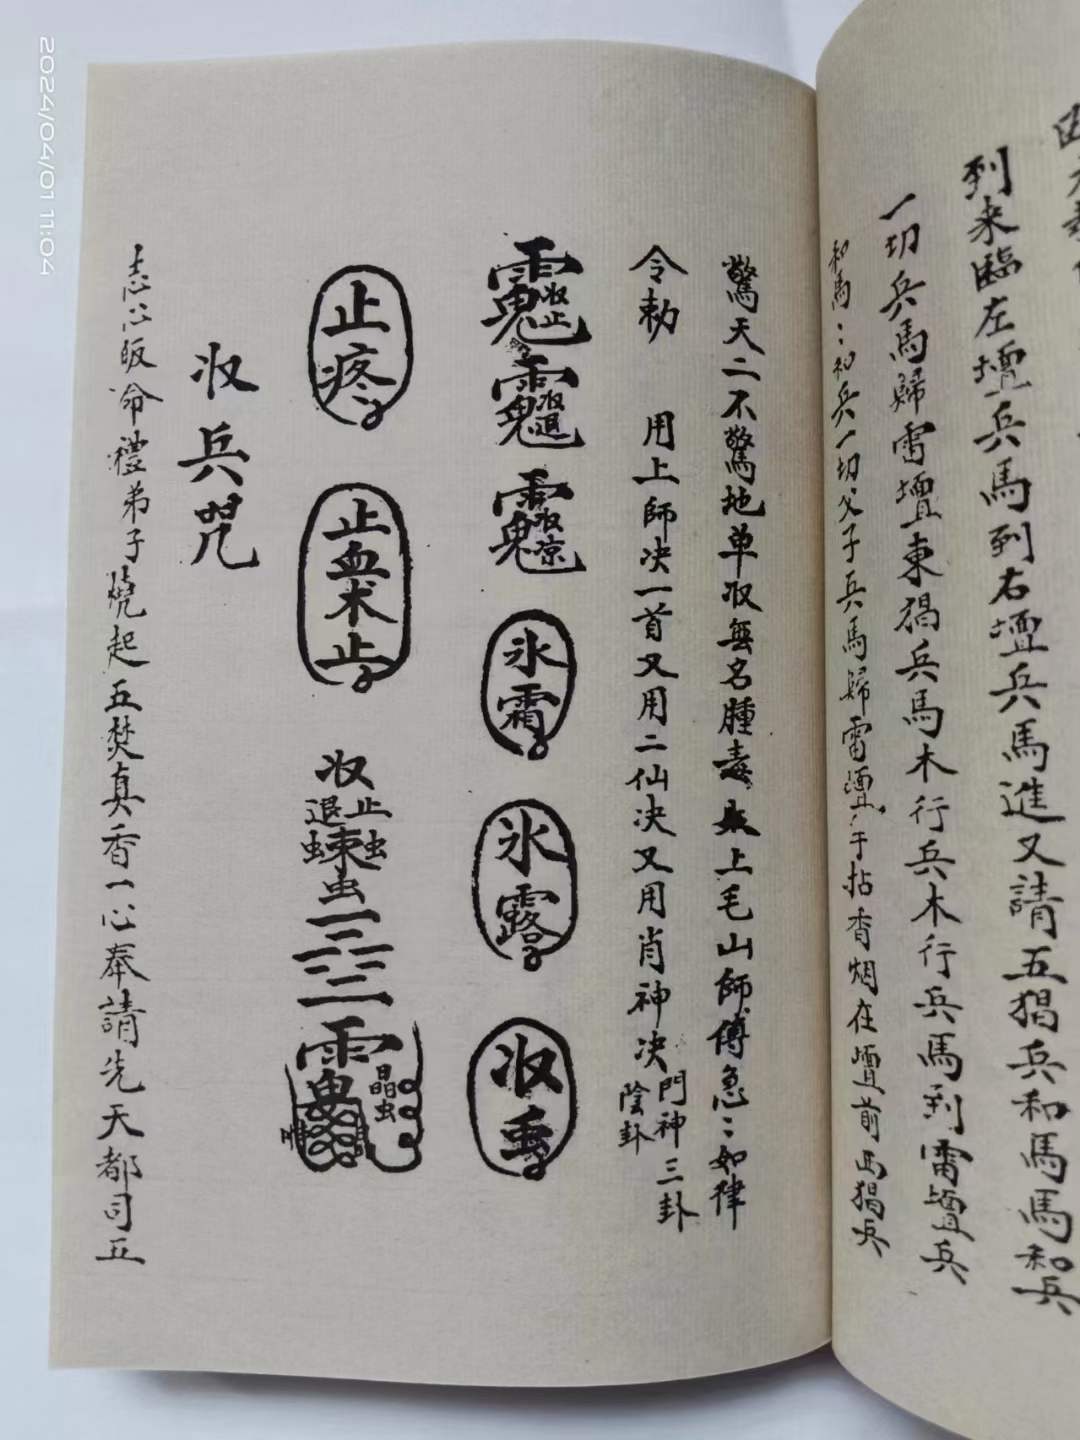 到来臨左壇兵馬到右壇兵馬進又請五猖兵和馬馬和兵
一切兵馬歸雷壇東猖兵馬木行兵木行兵馬到雷壇兵
和馬〻和兵一切父子兵馬歸雷壇手拈香烟在壇前西猖兵
驚天二不驚地单收無名腫毒上毛山師傅急〻如律
令勅 用上師决一首又用二仙决又用肖神决門神三卦
陰卦
收止
收退
收凉
氺霜
氺露
收
止疼
止血术止
收
退虫
止虫
晶虫
收兵咒
志心皈命禮弟子燒起五焚真香一心奉請先天都司五
2024/04/01 11:04